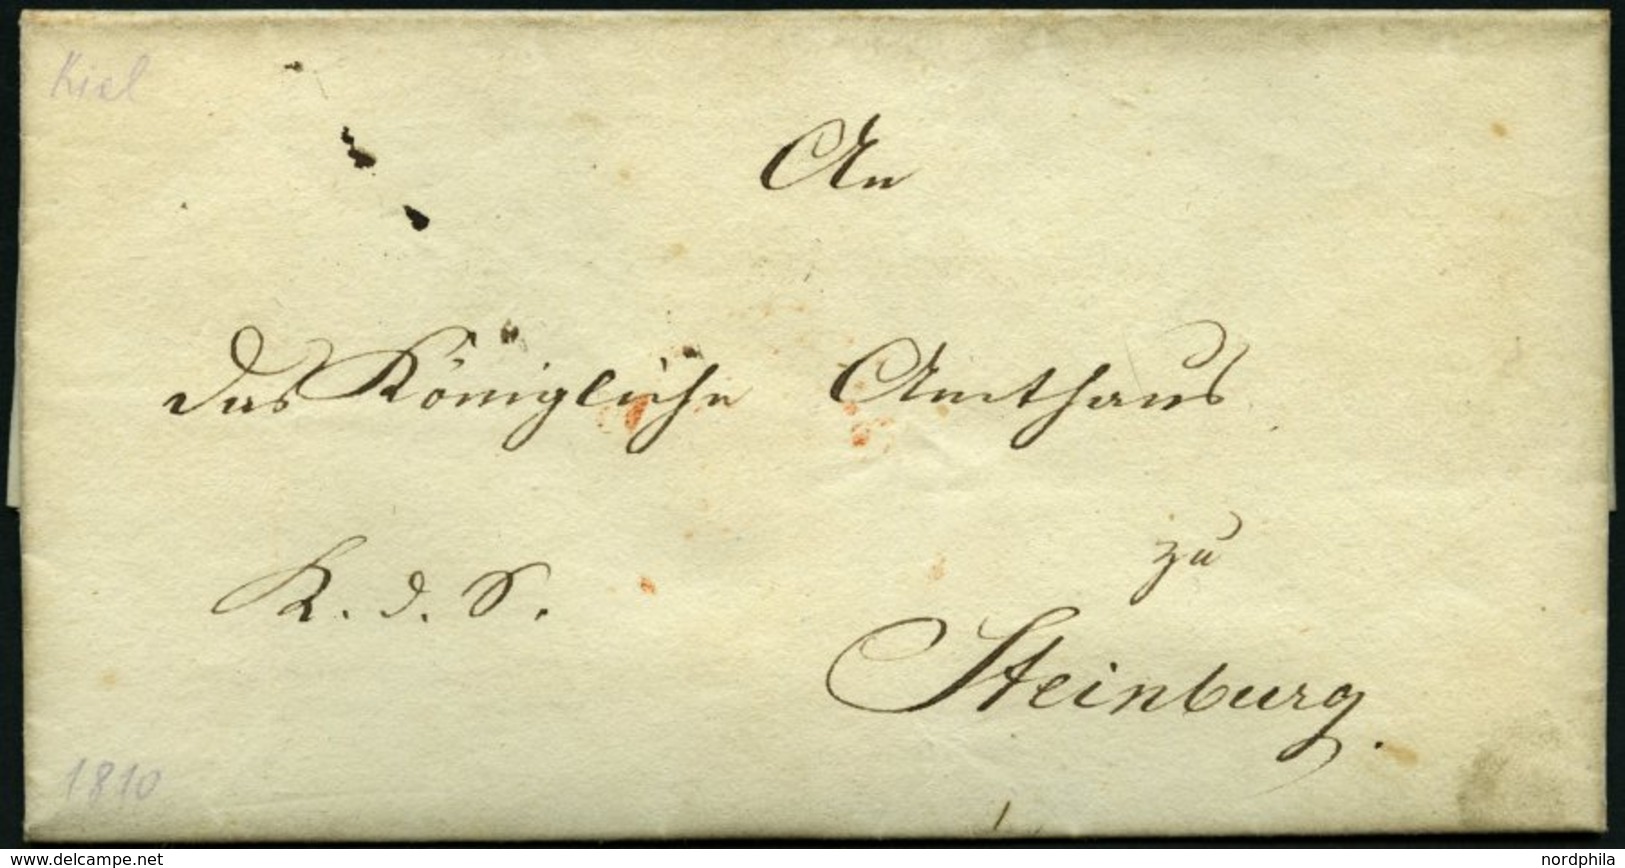 Kiel
An
das Königliche Amthaus
K. d. S.
zu
Steinburg.
1810
www.delcampe.net
nordphila